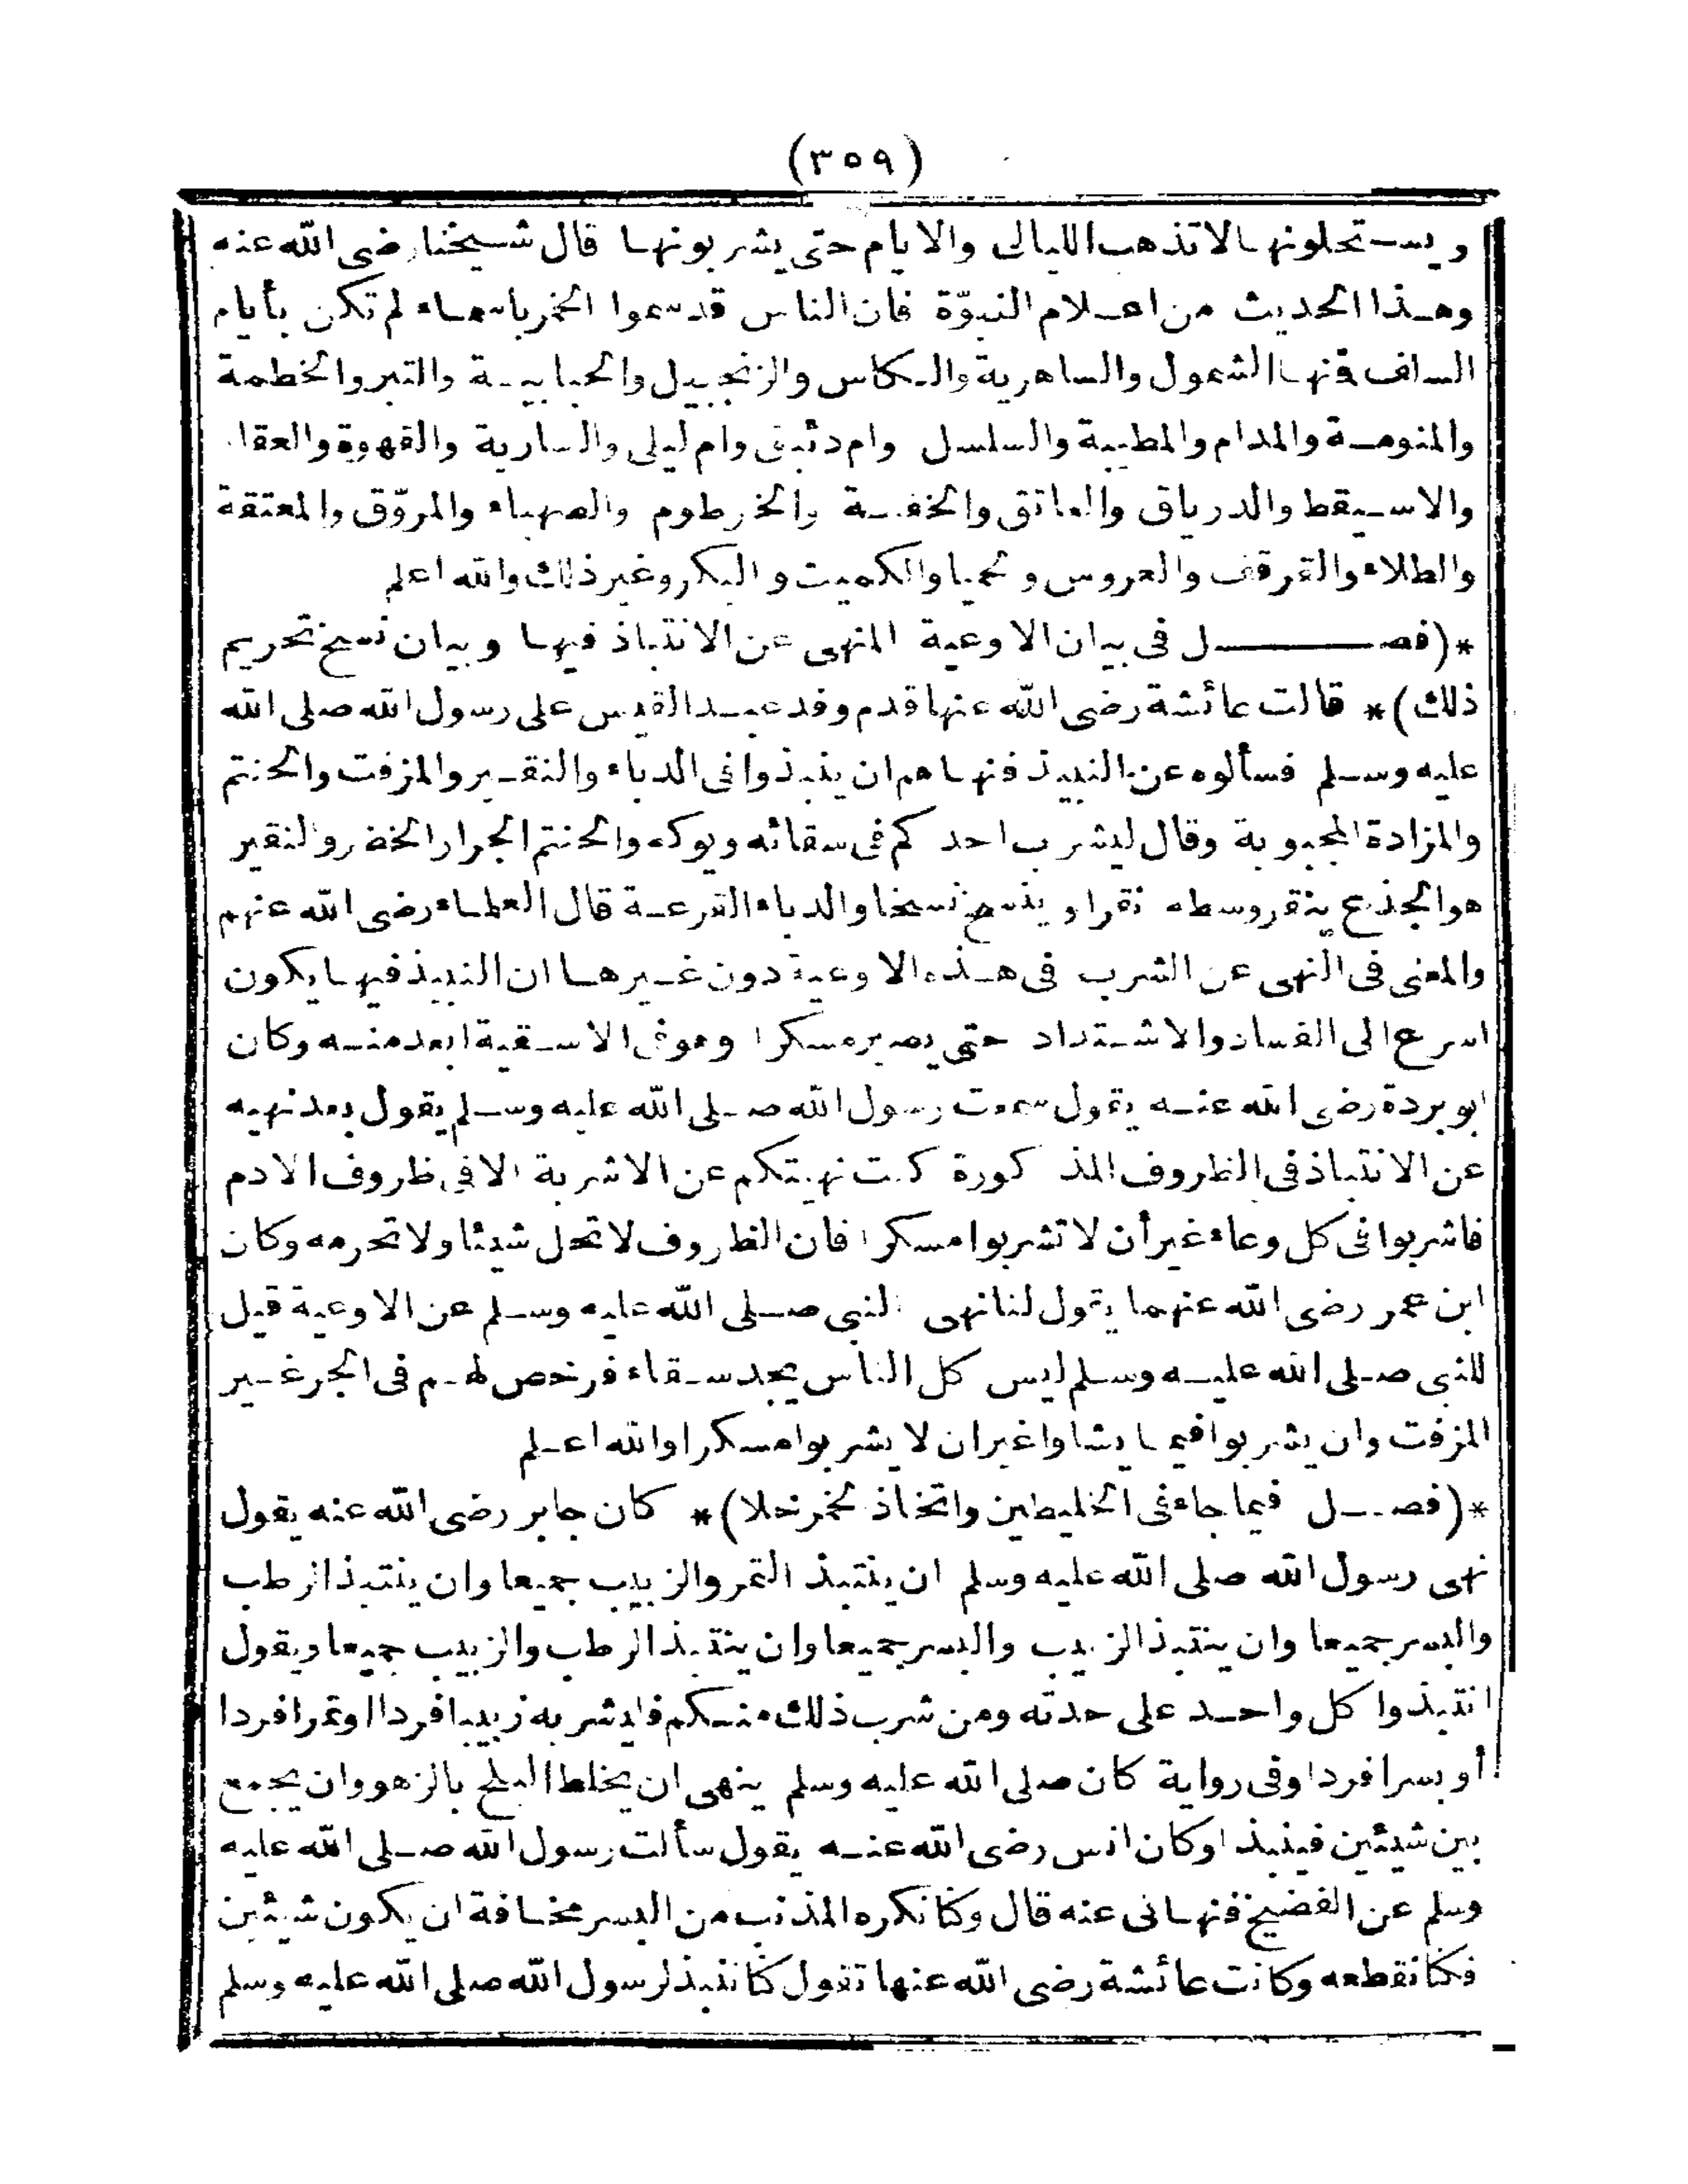 (٣٥٩)
ويستحلونها لا تذهب الليالى والايام حتى يشربونها قال شيخنا رضى الله عنه
وهذا الحديث من اعلام النبوّة فان الناس قد سموا الخمر باسماء لم تكن بأيام
السلف فنها الشمول والساهرية والكاس والزنجبيل والحبابية والتبر والخطمة
والمنومة والمدام والمطيبة والسلسل وام دئبق وام ليلى والسارية والقهوة والعقا
والاسيقط والدرياق والعاتق والخفية والخرطوم والصهباء والمروّق والمعتقة
والطلاء والقرقف والعروس وحميا والكميت والبكر وغير ذلك والله اعلم
*(فصـــل فى بيان الاوعية المنهى عن الانتباذ فيها وبيان نسخ تحريم
ذلك)* قالت عائشة رضى الله عنها قدم وفد عبد القيس على رسول الله صلى الله
عليه وسلم فسألوه عن النبيذ فنهاهم ان ينبذوا فى الدباء والنقير والمزفت والحنتم
والمزادة المجبوبة وقال ليشرب احدكم فى سقائه ويوكه والحنتم الجرار الخضر والنقير
هو الجذع ينقر وسطه نقرا وينسخ نسخا والدباء القرعة قال العلماء رضى الله عنهم
والمعنى فى النهى عن الشرب فى هذه الاوعية دون غيرها ان النبيذ فيها يكون
اسرع الى الفساد والاشتداد حتى يصير مسكرا وهو فى الاسقية ابعد منه وكان
ابو بردة رضى الله عنه يقول سمعت رسول الله صلى الله عليه وسلم يقول بعد نهيه
عن الانتباذ فى الظروف المذكورة كنت نهيتكم عن الاشربة الا فى ظروف الادم
فاشربوا فى كل وعاء غير أن لا تشربوا مسكرا فان الظروف لا تحل شيئا ولا تحرمه وكان
ابن عمر رضى الله عنهما يقول لما نهى النبى صلى الله عليه وسلم عن الاوعية قيل
للنبى صلى الله عليه وسلم ليس كل الناس يجد سقاء فرخص لهم فى الجر غير
المزفت وان يشربوا فيما يشاوا غير ان لا يشربوا مسكرا والله اعلم
*(فصــل فيما جاء فى الخليطين واتخاذ الخمر خلا)* كان جابر رضى الله عنه يقول
نهى رسول الله صلى الله عليه وسلم ان ينتبذ التمر والزبيب جميعا وان ينتبذ الرطب
والبسر جميعا وان ينتبذ الزبيب والبسر جميعا وان ينتبذ الرطب والزبيب جميعا ويقول
انتبذوا كل واحد على حدته ومن شرب ذلك منكم فليشربه زبيبا فردا او تمرا فردا
أو بسرا فردا وفى رواية كان صلى الله عليه وسلم ينهى ان يخلط البلح بالزهو وان يجمع
بين شيئين فينبذا وكان انس رضى الله عنه يقول سألت رسول الله صلى الله عليه
وسلم عن الفضيخ فنهانى عنه قال وكنا نكره المذنب من البسر مخافة ان يكون شيئين
فكنا نقطعه وكانت عائشة رضى الله عنها تقول كنا ننبذ لرسول الله صلى الله عليه وسلم